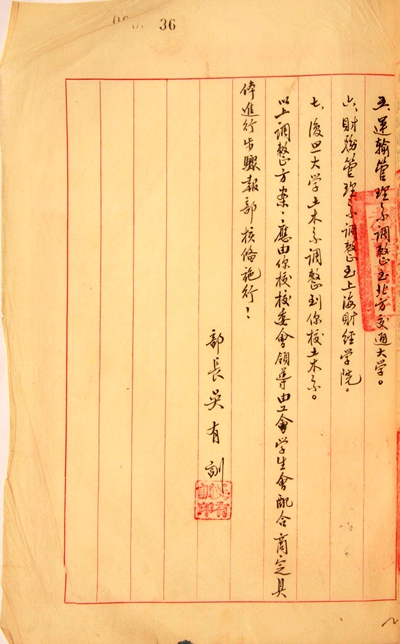 36
五.運輸管理系調整至北方交通大学。
六.財務管理系調整至上海財經学院。
七.復旦大学土木系調整到你校土木系。
以上調整方案,應由你校校委會領導由工會学生會配合商定具
体進行步驟報部核備施行!
部長吳有訓